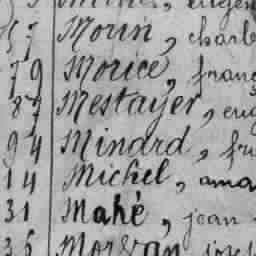 57 Morin, charle
79 Morice, franç
87 Mestayer, eug
94 Minard, fr
14 Michel, ama
31 Mahé, jean
36 Morvan, josep